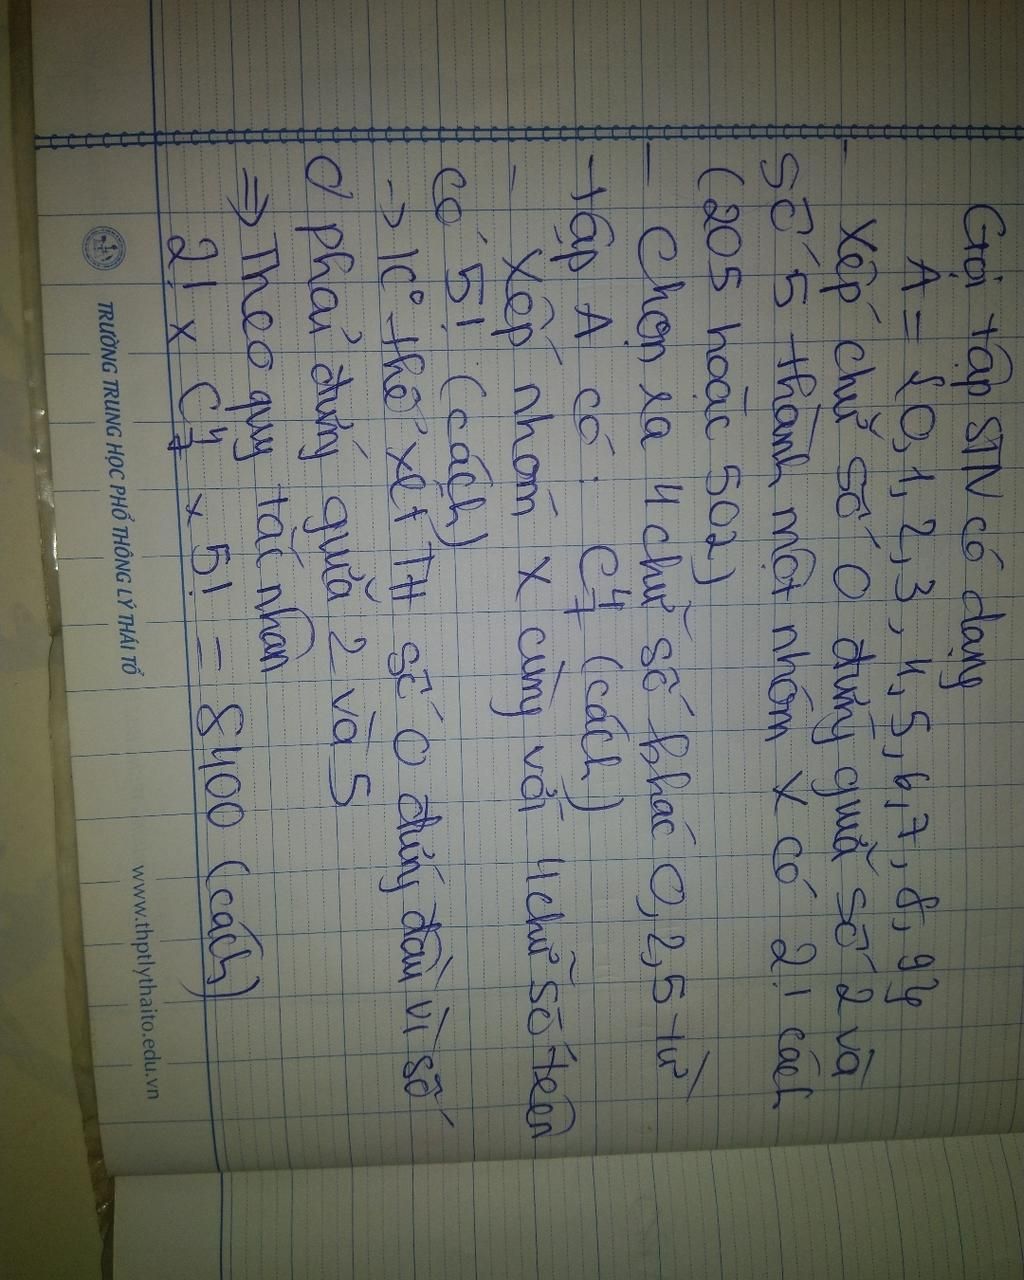 Gọi tập STN có dạng
A = {0,1,2,3,4,5,6,7,8,9}
- Xếp chữ số 0 đứng giữa số 2 và
số 5 thành một nhóm X có 2! cách
(205 hoặc 502)
- Chọn ra 4 chữ số khác 0,2,5 từ
tập A có: C⁴₇ (cách)
- Xếp nhóm X cùng với 4 chữ số trên
có 5! (cách)
-> K° thể xét TH số 0 đứng đầu vì số
0 phải đứng giữa 2 và 5
=> Theo quy tắc nhân
2! x C⁴₇ x 5! = 8400 (cách)
TRƯỜNG TRUNG HỌC PHỔ THÔNG LÝ THÁI TỔ
www.thptlythaito.edu.vn